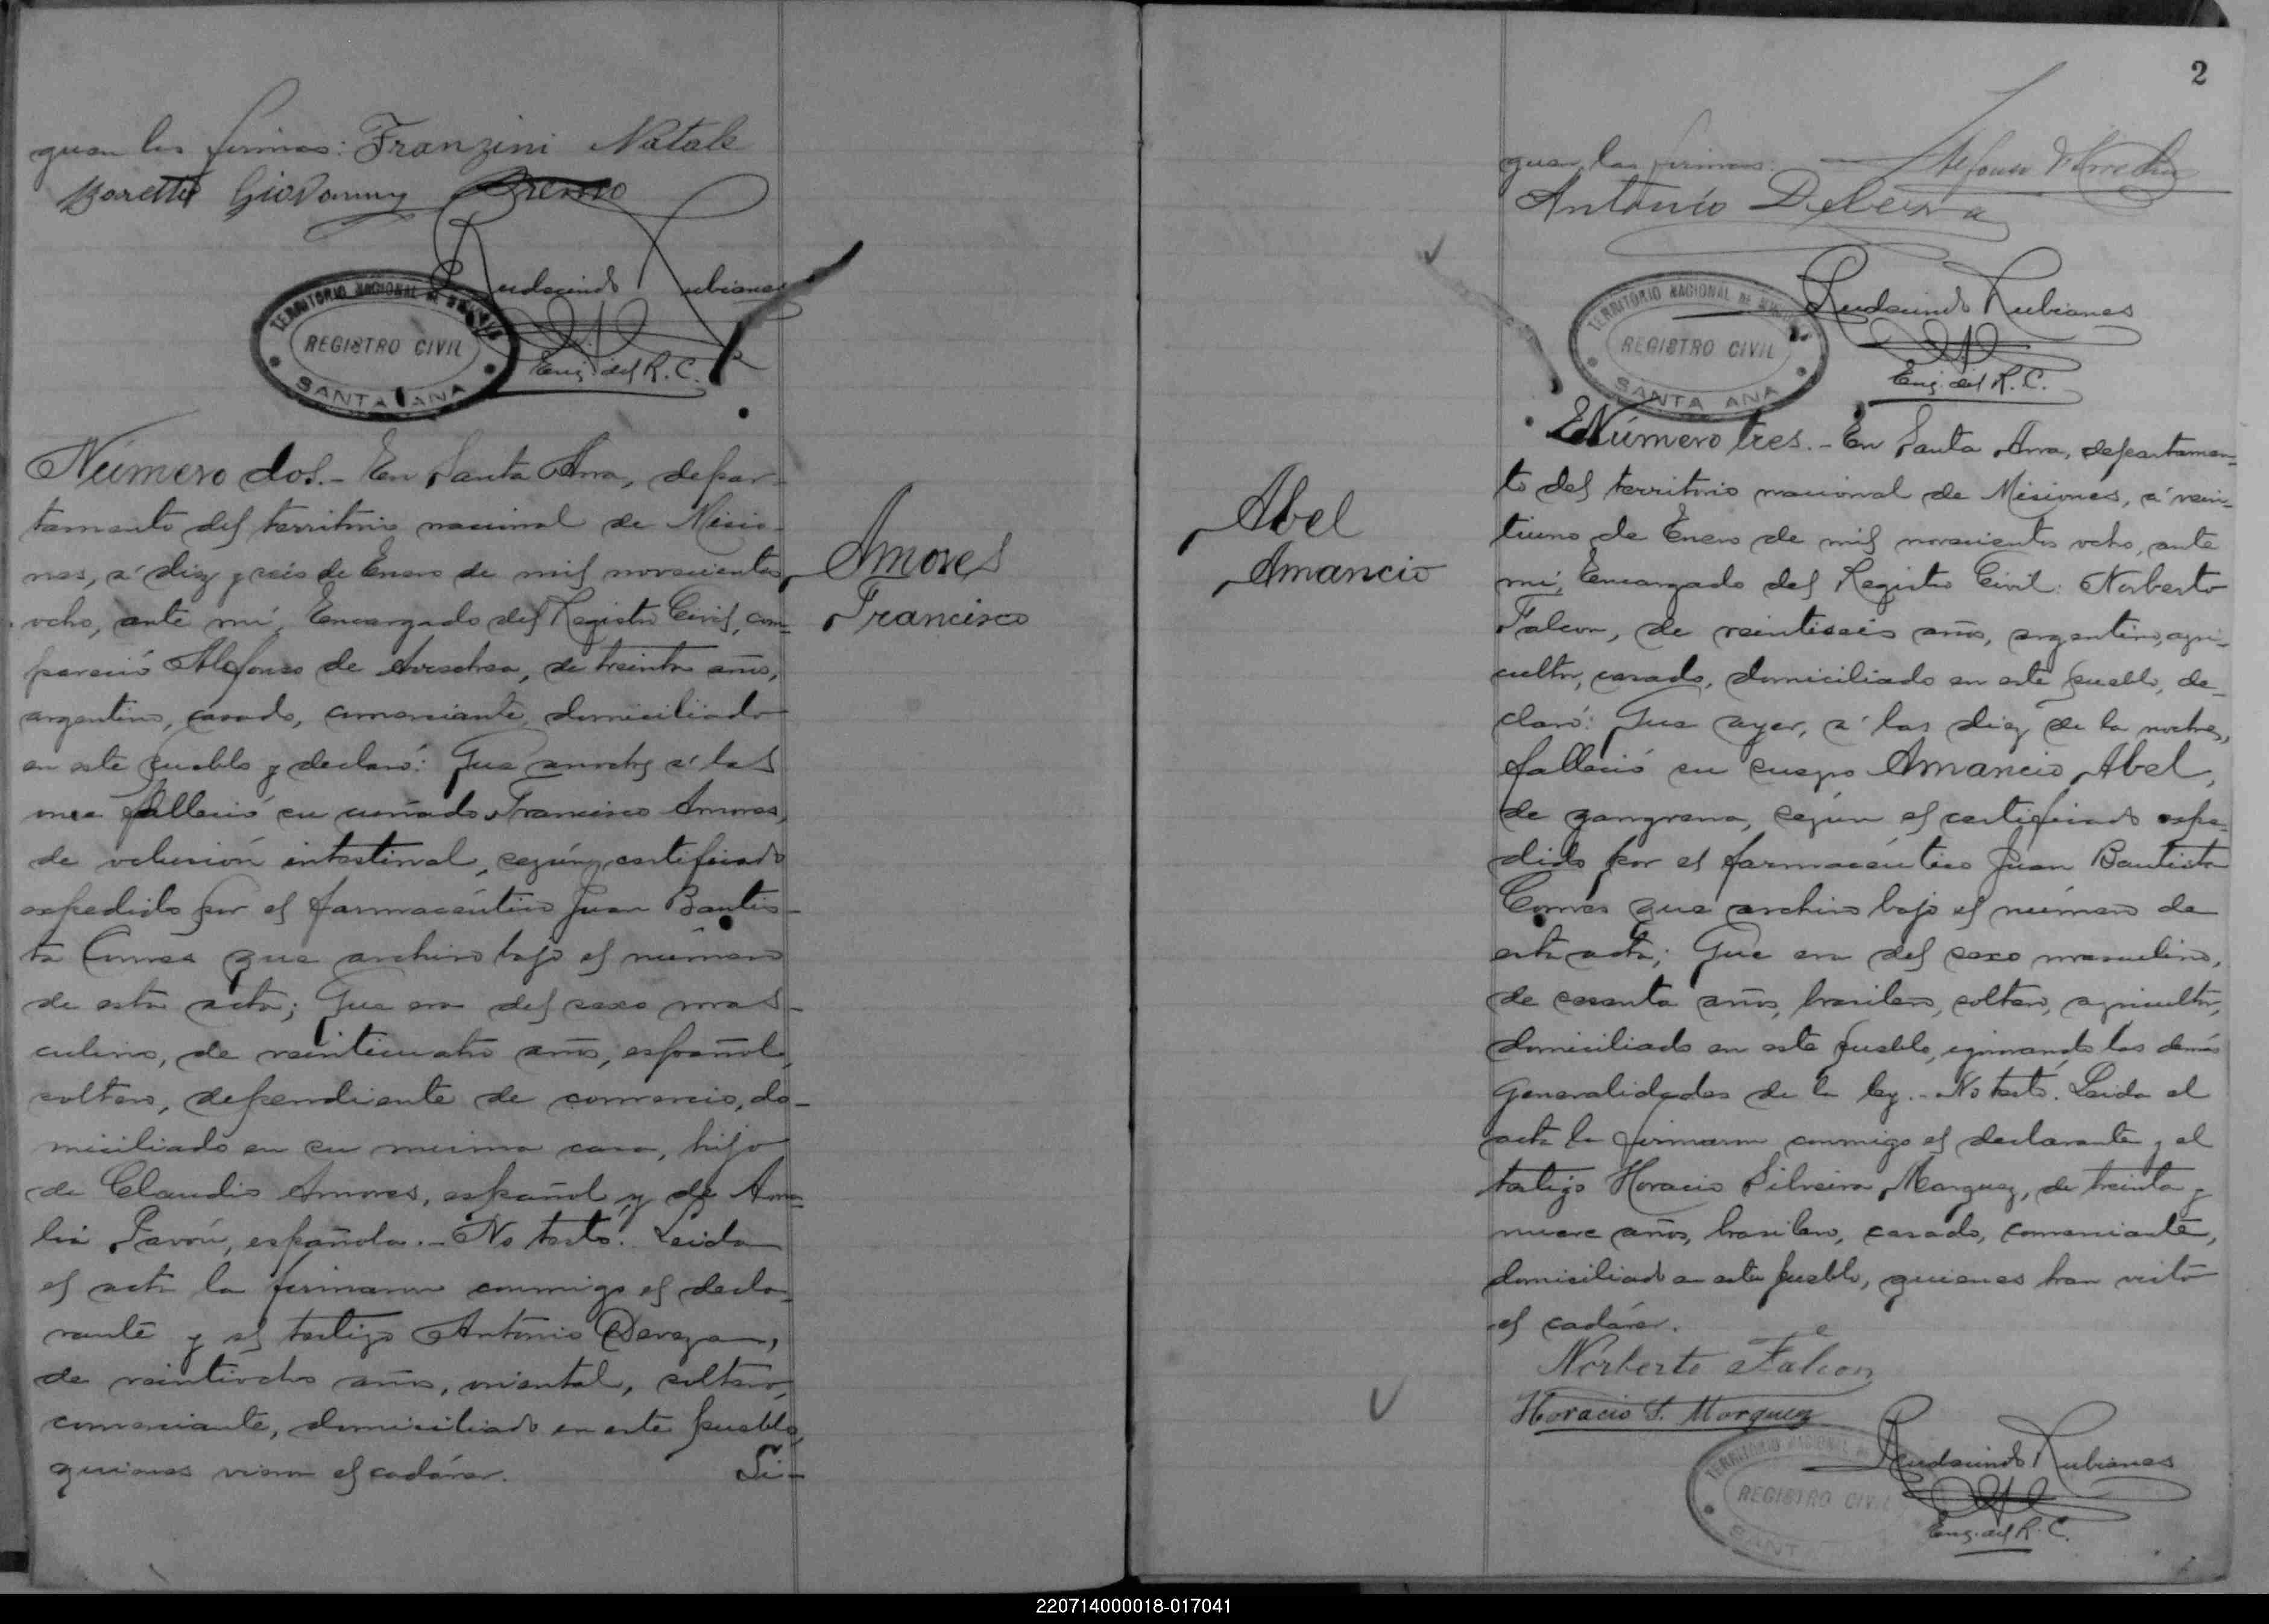 guen las firmas: Franzini Natale
Moretti Giovanny
Rudecindo Rubianes
TERRITORIO NACIONAL DE MISIONES
REGISTRO CIVIL
SANTA ANA
Enc. del R. C.
Número dos.- En Santa Ana, depar-
tamento del territorio nacional de Misio-
nes, á diez y seis de Enero de mil novecientos
ocho, ante mí, Encargado del Registro Civil, com-
pareció Alefonso de Arrechea, de treinta años,
argentino, casado, comerciante, domiciliado
en este pueblo y declaró: Que anoche á las
once falleció su cuñado Francisco Amores,
de oclusión intestinal, según certificado
expedido por el farmacéutico Juan Bautis-
ta Comes que archivo bajo el número
de esta acta; Que era del sexo mas-
culino, de veinticuatro años, español,
soltero, dependiente de comercio, do-
miciliado en su misma casa, hijo
de Claudio Amores, español y de Ama-
lia Pavón, española.- No testó. Leida
el acta la firmaron conmigo el decla-
rante y el testigo Antonio
de veintiocho años, oriental, soltero,
comerciante, domiciliado en este pueblo,
quienes vieron el cadáver. Si-
Amores
Francisco
2
guen las firmas:
Antonio
Rudecindo Rubianes
TERRITORIO NACIONAL DE MISIONES
REGISTRO CIVIL
SANTA ANA
Enc. del R. C.
Abel
Amancio
Número tres.- En Santa Ana, departamen-
to del territorio nacional de Misiones, á vein-
tiuno de Enero de mil novecientos ocho, ante
mí, Encargado del Registro Civil: Norberto
Falcon, de veintiseis años, argentino, agri-
cultor, casado, domiciliado en este pueblo, de-
claró: Que ayer, á las diez de la noche,
falleció su suegro Amancio Abel,
de gangrena, según el certificado expe-
dido por el farmacéutico Juan Bautista
Comes que archivo bajo el número de
esta acta; Que era del sexo masculino,
de sesenta años, brasilero, soltero, agricultor,
domiciliado en este pueblo, ignorando las demás
generalidades de la ley.- No testó. Leida el
acta la firmaron conmigo el declarante y el
testigo Horacio Silveira Marquez, de treinta y
nueve años, brasilero, casado, comerciante,
domiciliado en este pueblo, quienes han visto
el cadáver.
Norberto Falcon
Horacio S. Marquez
Rudecindo Rubianes
TERRITORIO NACIONAL DE
REGISTRO CIVIL
SANTA
Enc. del R. C.
220714000018-017041